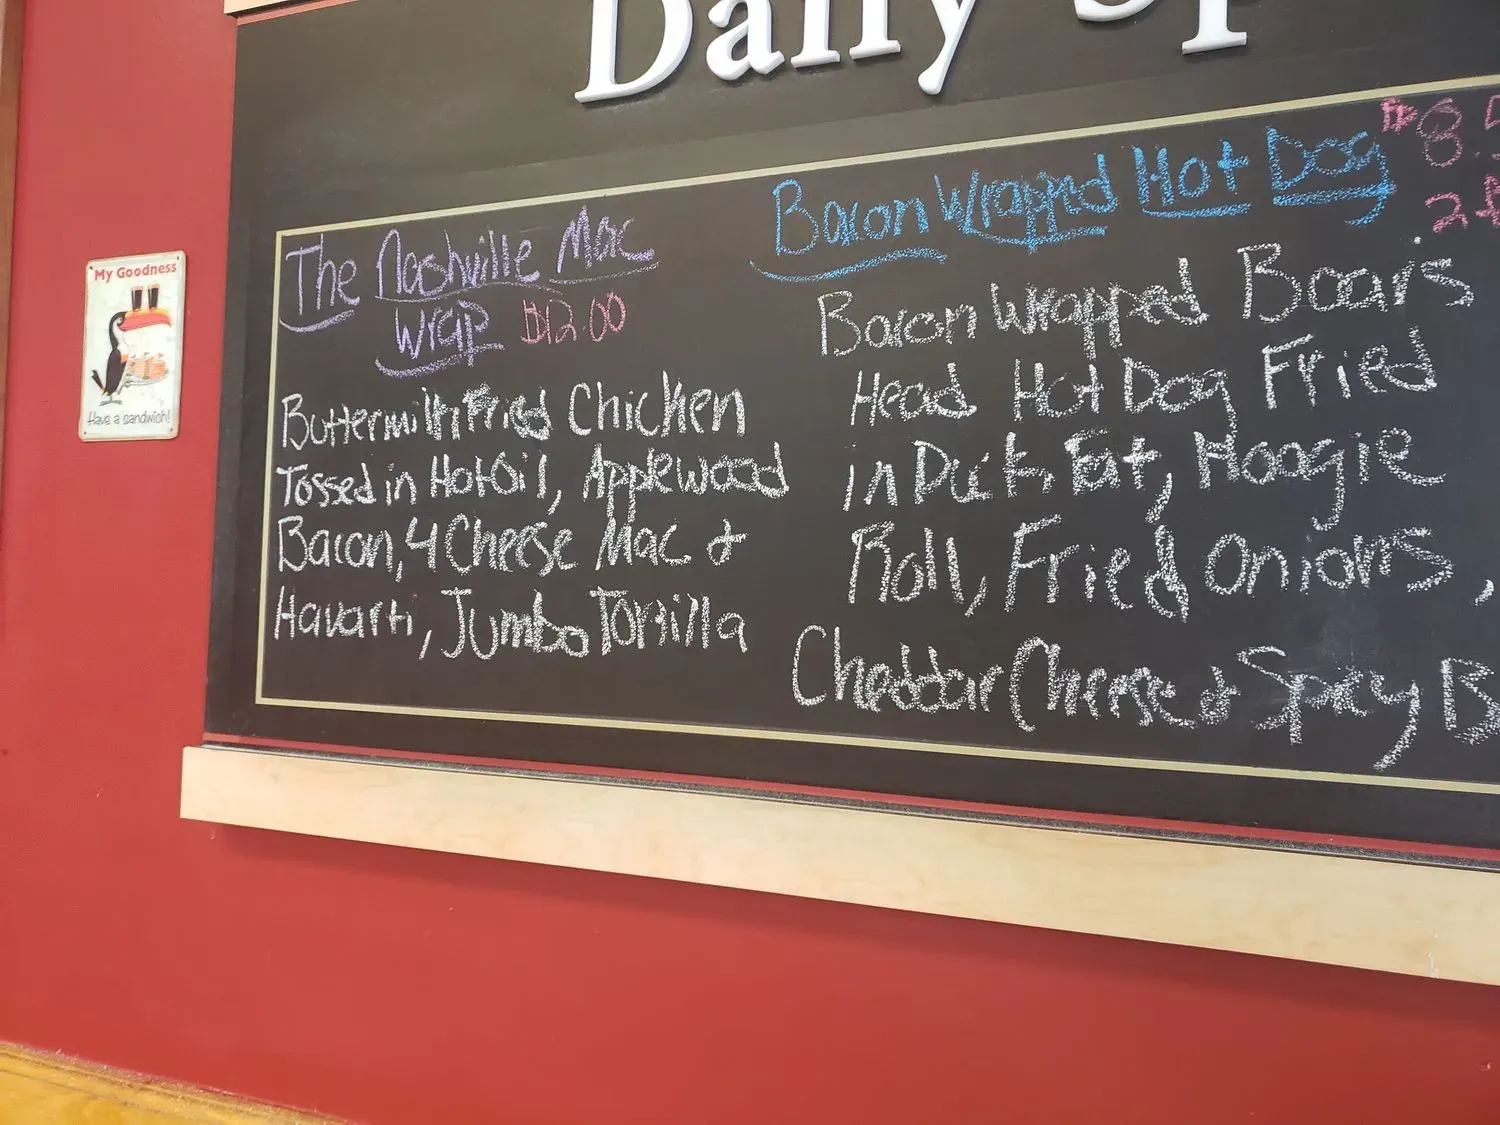 Daily Sp
The Nashville Mac
Wrap $12.00
Buttermilk Fried Chicken
Tossed in Hot Oil, Applewood
Bacon, 4 Cheese Mac &
Havarti, Jumbo Tortilla
Bacon Wrapped Hot Dog
8.5
Bacon Wrapped Boar's
Head Hot Dog Fried
in Duck Fat, Hoagie
Roll, Fried Onions,
Cheddar Cheese & Spicy B
My Goodness
Have a sandwich!